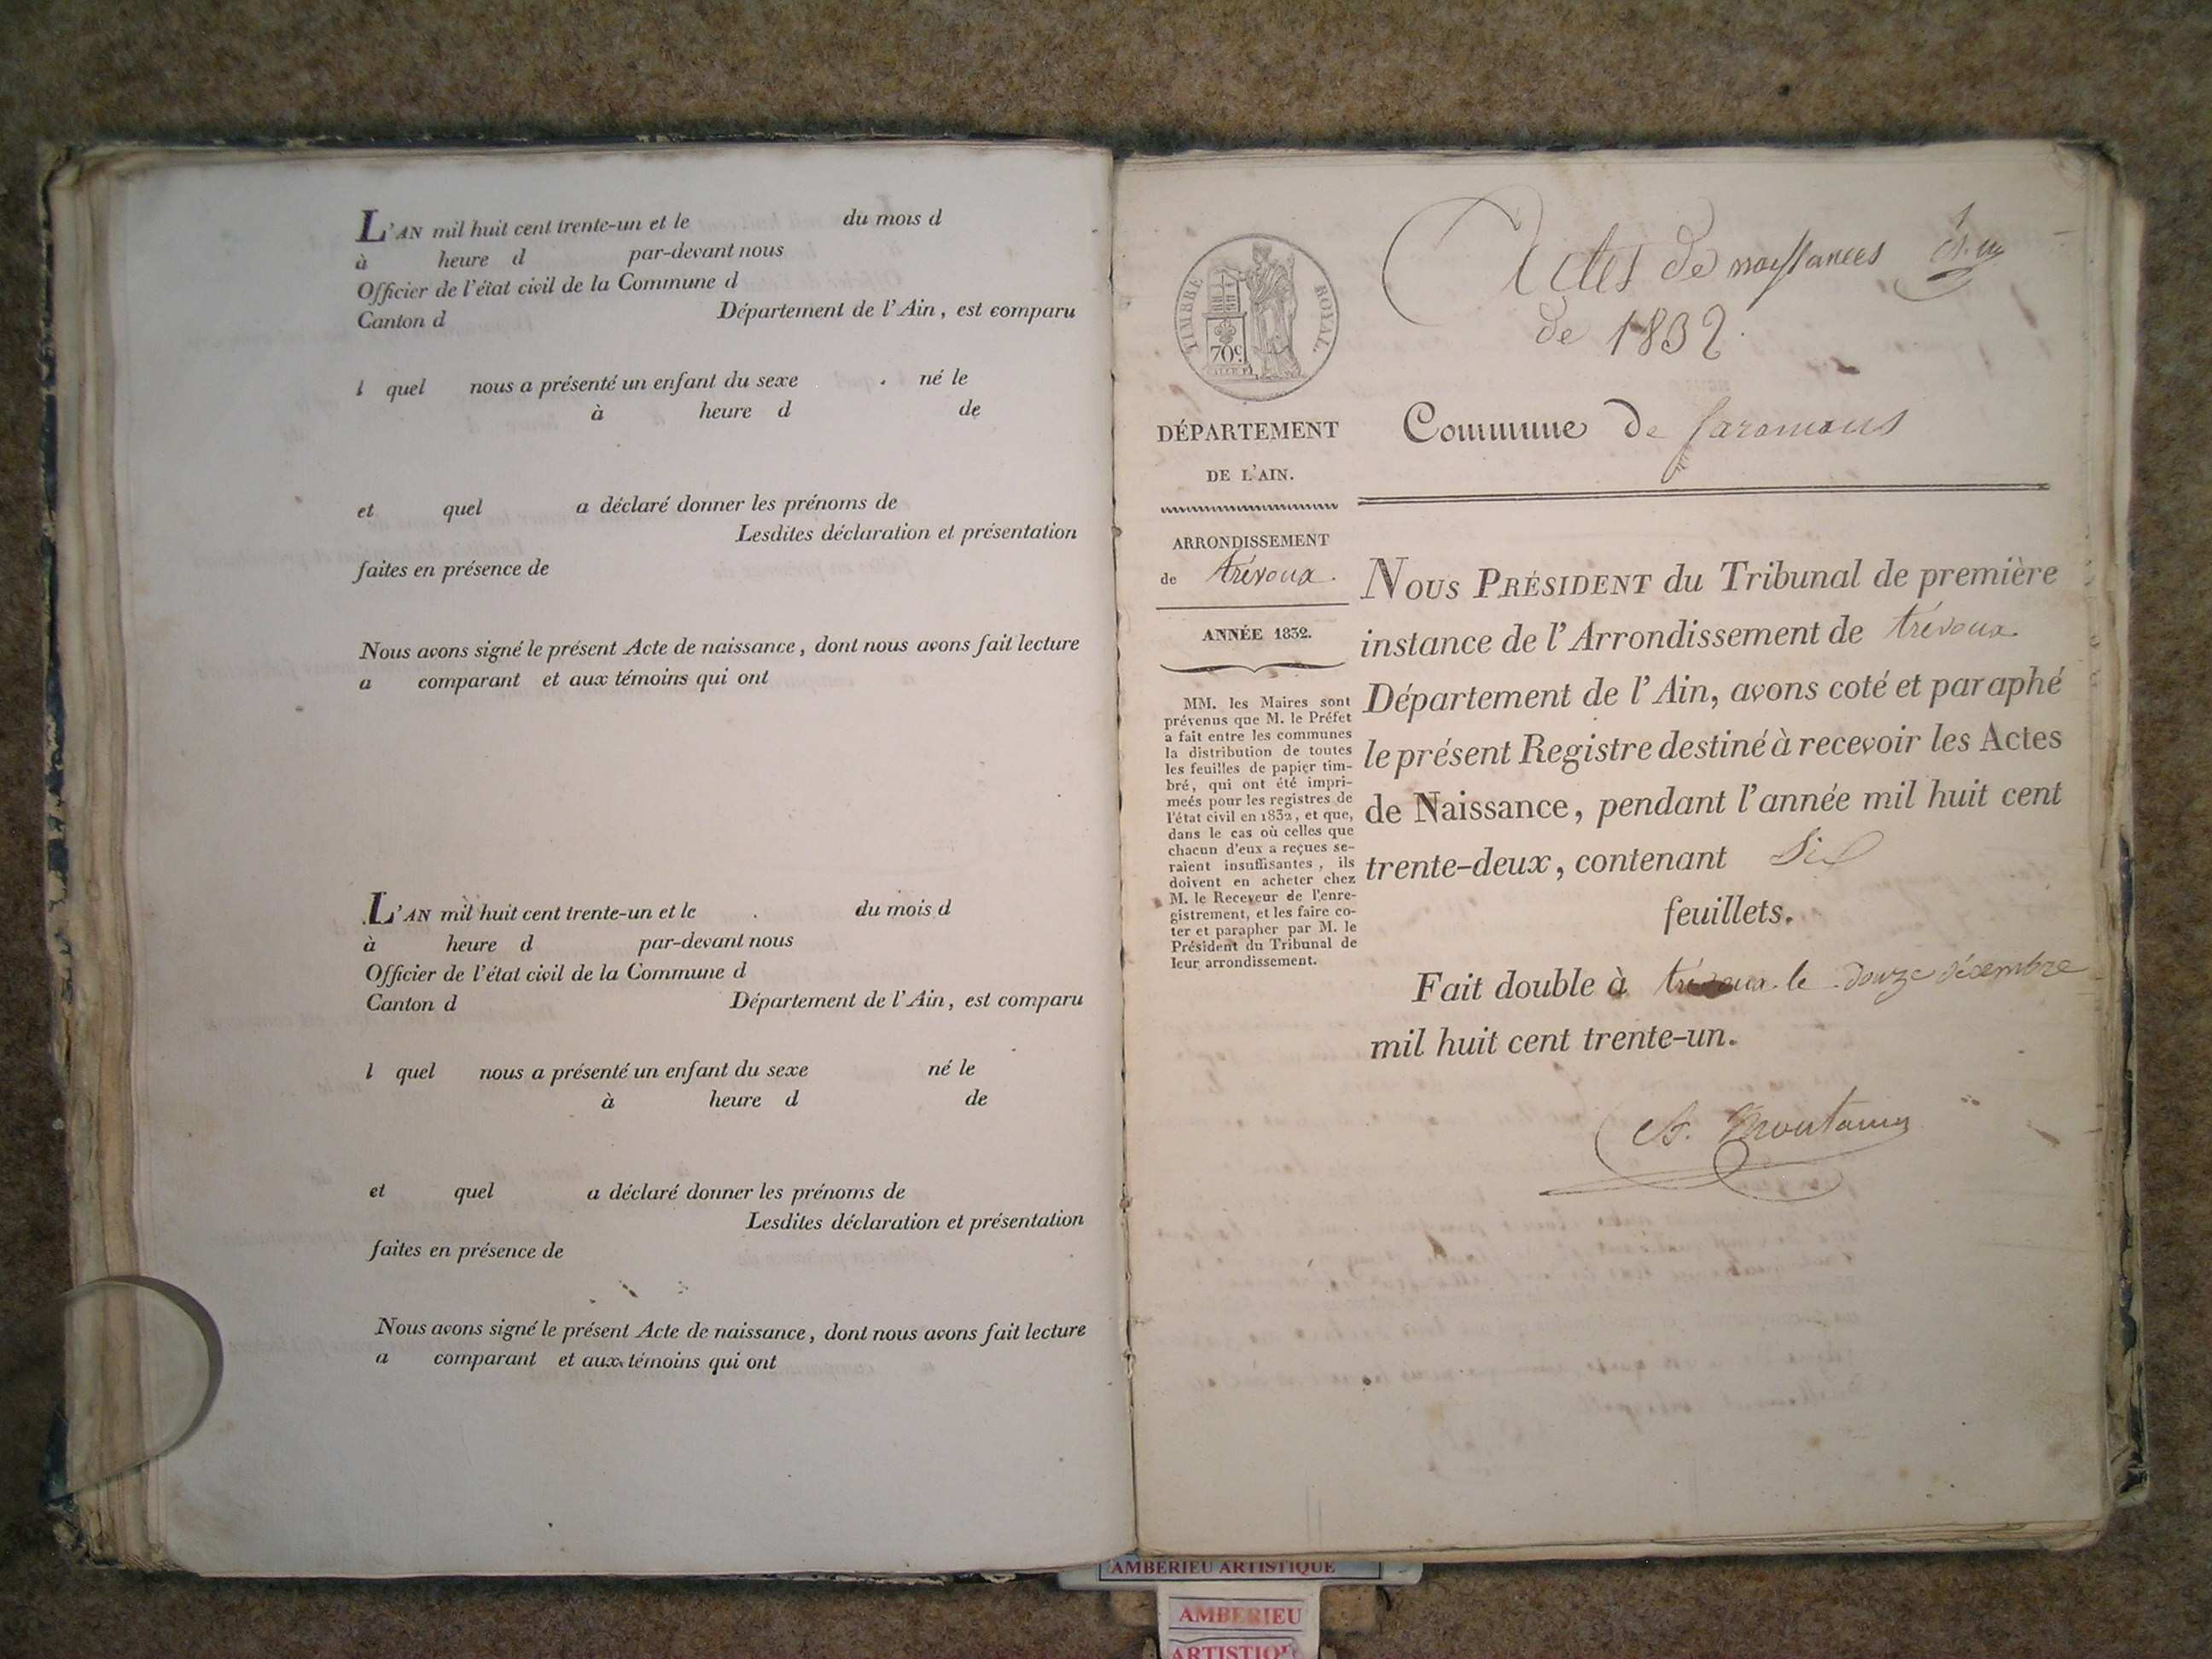 L'AN mil huit cent trente-un et le du mois d
à heure d par-devant nous
Officier de l'état civil de la Commune d
Canton d Département de l'Ain, est comparu
l quel nous a présenté un enfant du sexe né le
à heure d de
et quel a déclaré donner les prénoms de
Lesdites déclaration et présentation
faites en présence de
Nous avons signé le présent Acte de naissance, dont nous avons fait lecture
a comparant et aux témoins qui ont
L'AN mil huit cent trente-un et le du mois d
à heure d par-devant nous
Officier de l'état civil de la Commune d
Canton d Département de l'Ain, est comparu
l quel nous a présenté un enfant du sexe né le
à heure d de
et quel a déclaré donner les prénoms de
Lesdites déclaration et présentation
faites en présence de
Nous avons signé le présent Acte de naissance, dont nous avons fait lecture
a comparant et aux témoins qui ont
TIMBRE ROYAL.
70c
DÉPARTEMENT
DE L'AIN.
ARRONDISSEMENT
de trévoux.
ANNÉE 1832.
MM. les Maires sont
prévenus que M. le Préfet
a fait entre les communes
la distribution de toutes
les feuilles de papier tim-
bré, qui ont été impri-
meés pour les registres de
l'état civil en 1832, et que,
dans le cas où celles que
chacun d'eux a reçues se-
raient insuffisantes, ils
doivent en acheter chez
M. le Receveur de l'enre-
gistrement, et les faire co-
ter et parapher par M. le
Président du Tribunal de
leur arrondissement.
Actes de naissances
de 1832.
Commune de faramans
NOUS PRÉSIDENT du Tribunal de première
instance de l'Arrondissement de trévoux
Département de l'Ain, avons coté et paraphé
le présent Registre destiné à recevoir les Actes
de Naissance, pendant l'année mil huit cent
trente-deux, contenant Six
feuillets.
Fait double à trévoux le douze décembre
mil huit cent trente-un.
AMBERIEU ARTISTIQUE
AMBERIEU
ARTISTIQ